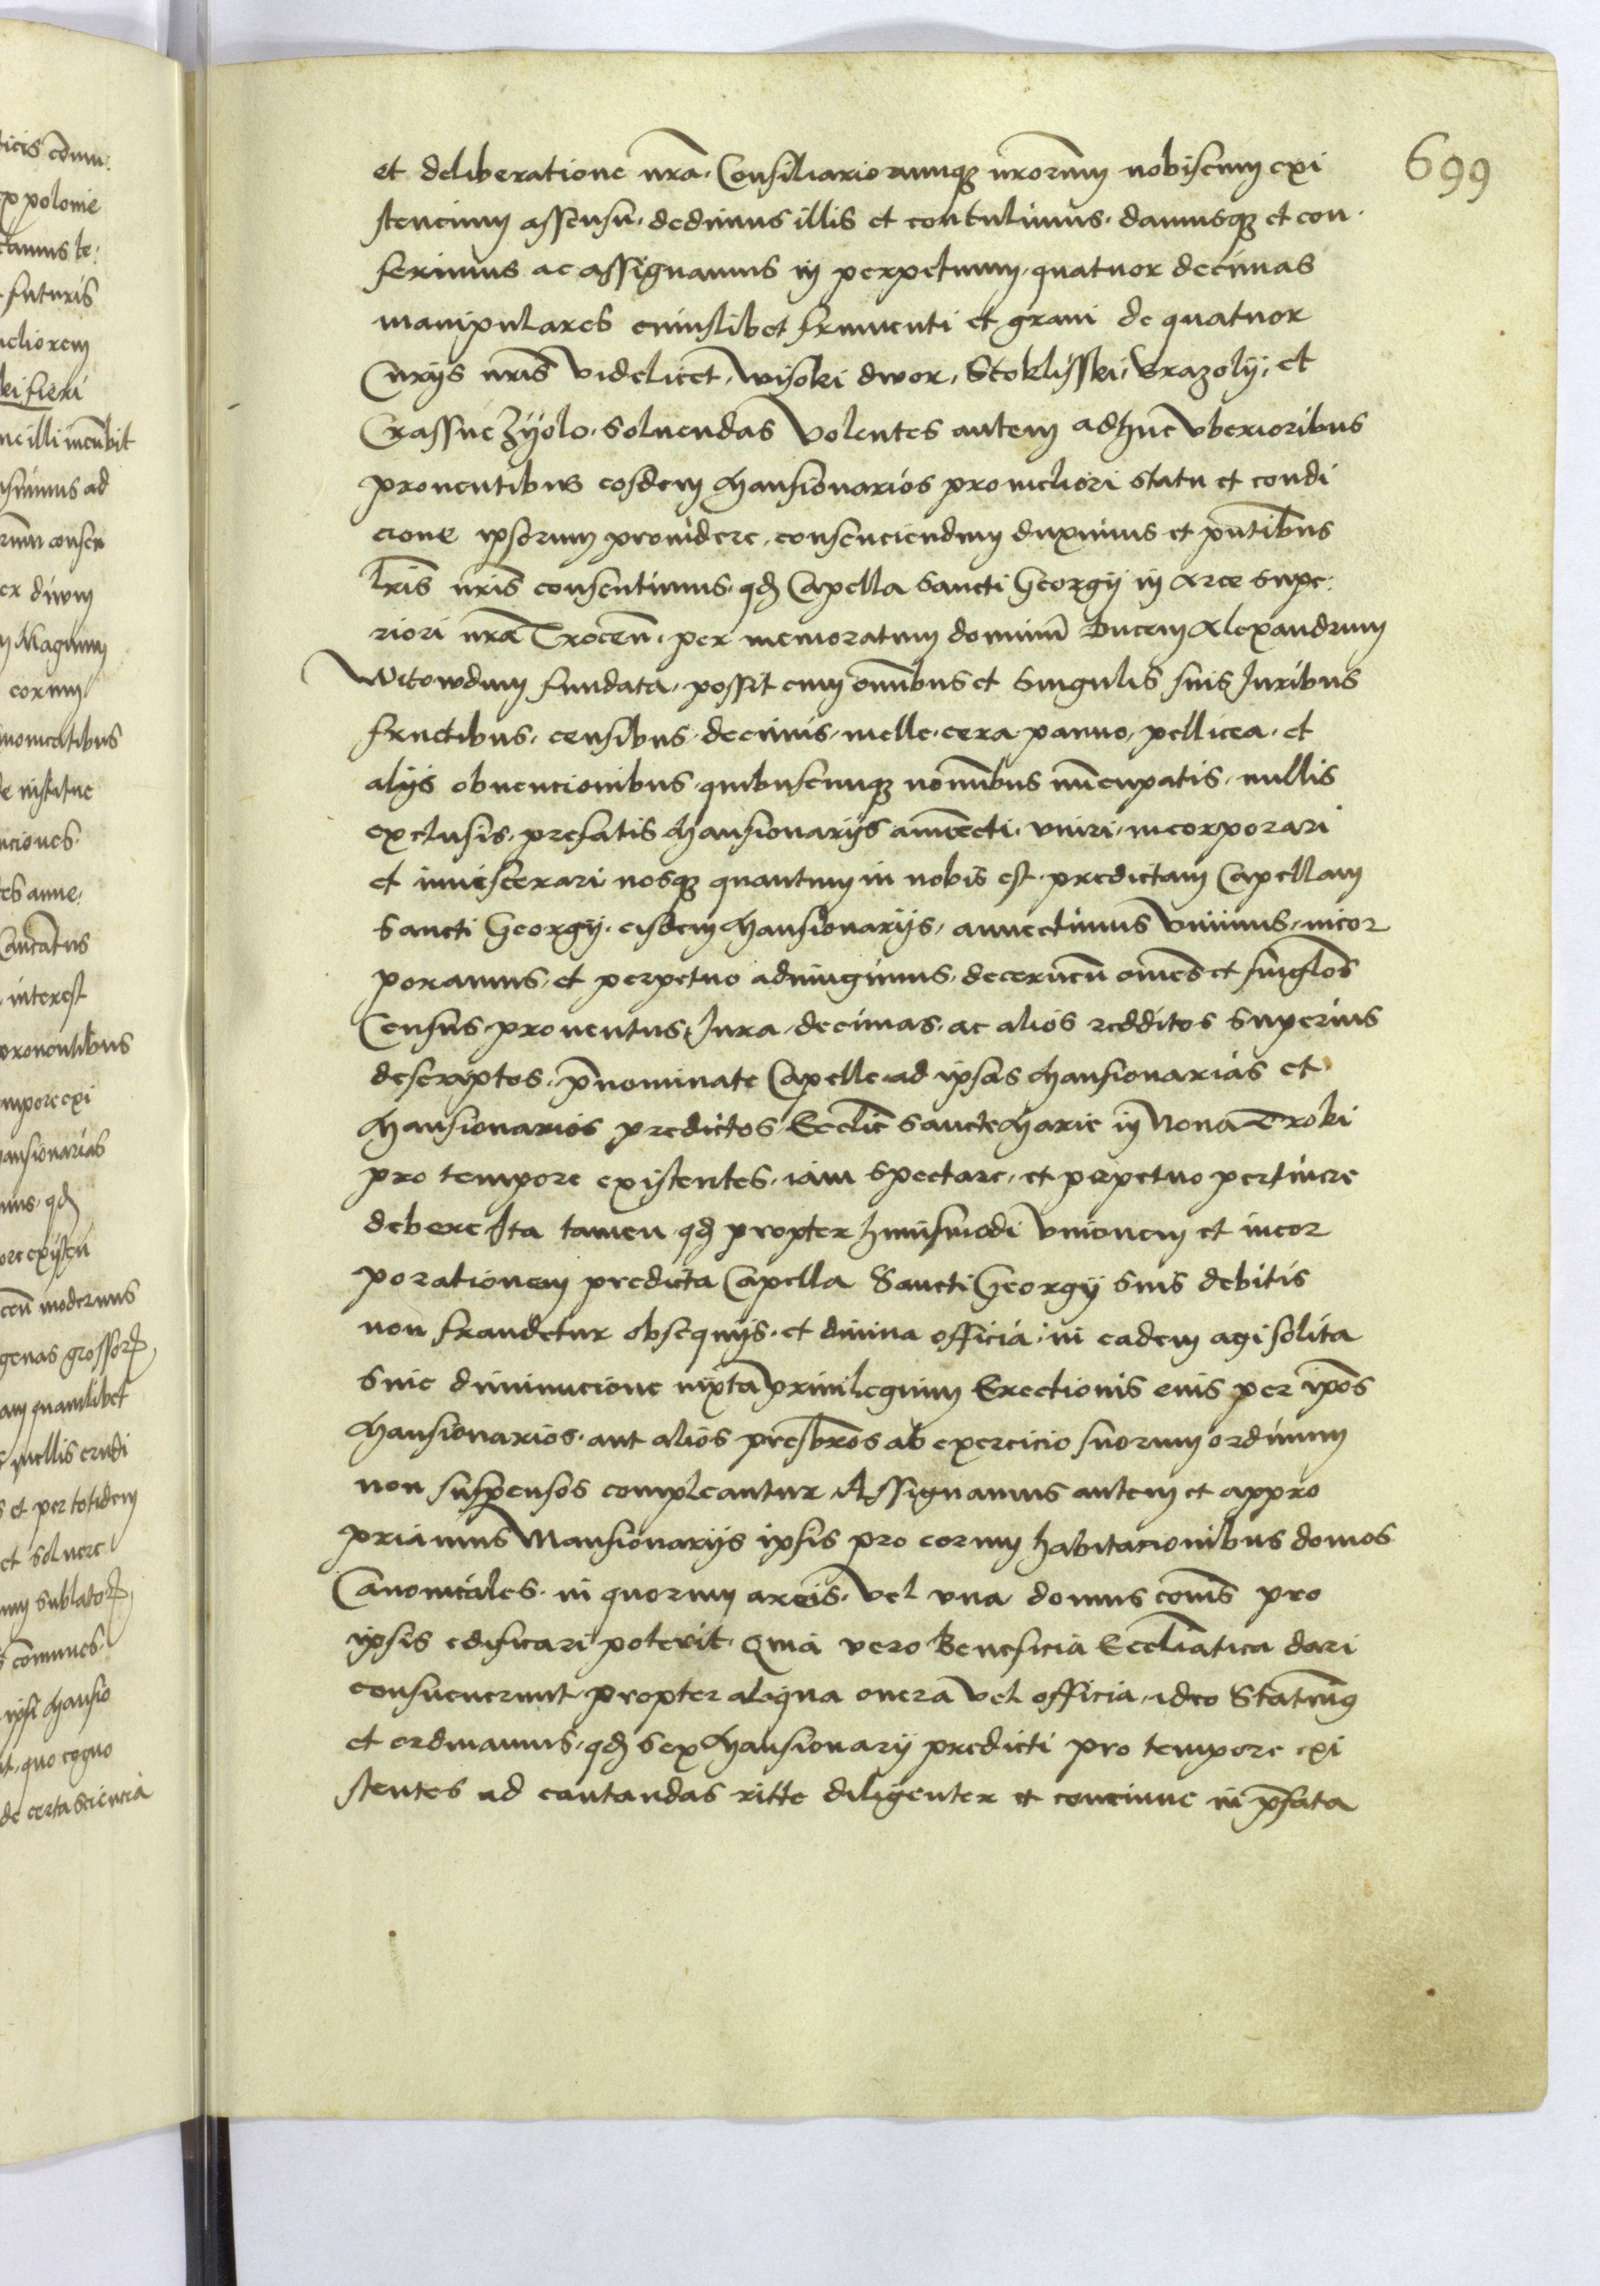 699
et deliberatione nrã. Consiliariorumq3 nrorum nobiscum exi
stencium assensu. dedimus illis et contulimus. damusq3 et con.
ferimus ac assignamus in perpetuum. quatuor decimas
manipulares cuiuslibet frumenti et grani de quatuor
Curijs nrĩs videlicet, wisoki dwor, Stoklisski, Brazolij, et
Crassne Zÿolo. soluendas Volentes autem adhuc vberioribus
prouentibus eosdem Mansionarios pro meliori statu et condi
cione ipsorum prouidere, consenciendum duximus et pñtibus
lrĩs nrĩs consentimus. qd Capella Sancti Georgij in Arce supe:
riori nrã Trocen̄. per memoratum dominũ Ducem Alexandrum
Witowdum fundata, possit cum om̄ibus et singulis suis Juribus
fructibus, censibus. decimis. melle. cera panno, pellicea. et
alijs obuencionibus. quibuscumq3 nomĩbus nũcupatis, nullis
exclusis. prefatis Mansionarijs am̄ecti. vniri. incorporari
et inuiscerari nosq3 quantum in nobis est. predictam Capellam
Sancti Georgij. eisdem Mansionarijs, annectimus Vnimus, incor
poramus, et perpetuo adiungimus. decernen̄ om̄es et sing̃los
Census. prouentus, Jura. decimas. ac alios redditos superius
descriptos. p̄nominate Capelle. ad ipsas Mansionarias et
Mansionarios predictos Eccliẽ Sancte Marie in Noua Troki
pro tempore existentes. iam spectare, et perpetuo pertinere
debere Ita tamen qd propter huiusmodi Vnionem et incor
porationem predicta Capella Sancti Georgij suis debitis
non fraudetur obsequijs. et diuina officia. in eadem agi solita
sine diminucione iuxta priuilegium Erectionis eius per ip̄os
Mansionarios. aut alios presbr̃os ab exercicio suorum ordinum
non suspensos compleantur Assignamus autem et appro
priamus Mansionarijs ipsis pro eorum habitacionibus domos
Canonicales. in quorum areis. Vel vna domus com̃s pro
ipsis edificari poterit. Quia vero Beneficia Eccliãtica dari
consueuerunt. propter aliqua onera vel officia. ideo Statuim9
et ordinamus. qd sex Mansionarij predicti pro tempore exi
stentes ad cantandas ritte diligenter et concinne in p̃fata